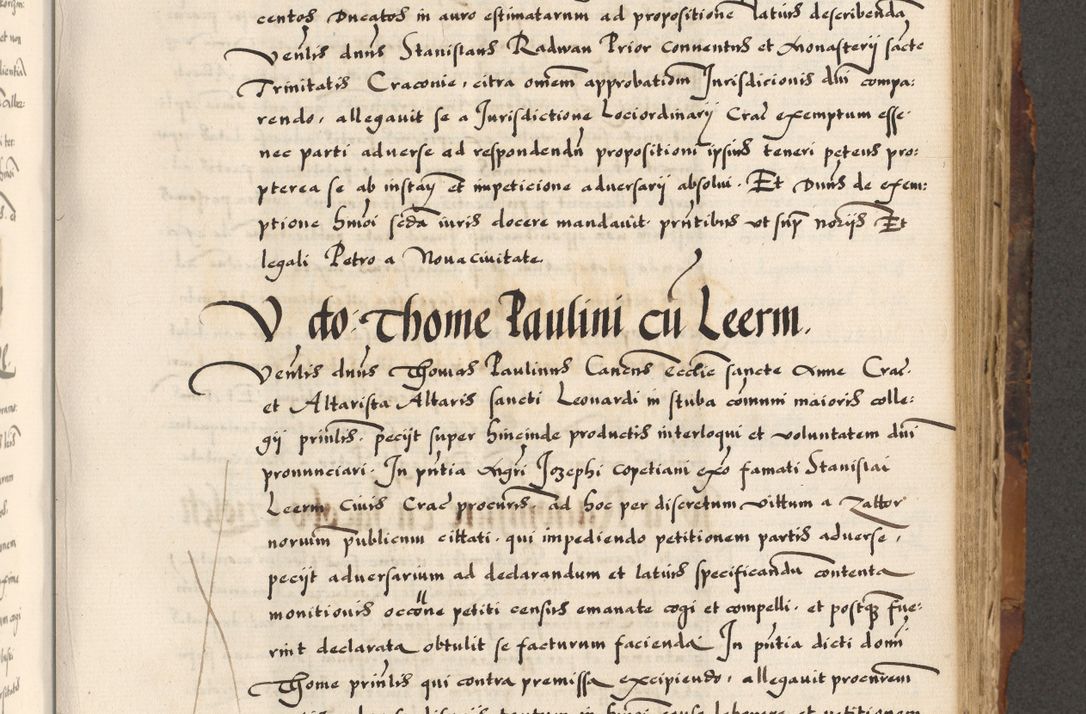 centos Ducatos in auro estimatarum ad propositione latius describenda
Venlis dnus Stanislaus Radwan Prior Conventus et Monasterij sacte
Trinitatis Craconie, citra omem approbationem Jurisdicionis dni compa:
rendo, allegavit se a Jurisdictione Lociordinarij Crac exemptum esse
nec parti adverse ad respondendu propositioni ipsius teneri petens pro:
pterea se ab instan et impeticione adversarij absolui. Et Duns de exem:
ptione hmoi scda iuris docere mandavit. pntibus ut sup norijs Et
legali Petro a Novacivitate.
V do: Thome Paulini cu Leerm.
Venlis dnus Thomas Paulinus Canens Ecclie sancte Anne Crac.
et Altarista Altaris sancti Leonardi in stuba comuni maioris colle:
gij prinlis. pecijt super hincinde productis interloqui et voluntatem dni
pronunciari. In pntia Mgri Jozephi copetiani exo famati Stanislai
Leerm Civis Crac procuris, ad hoc per discretum Vittum a Zattor
norium publicum cittati. qui impediendo petitionem partis adverse,
pecijt adversarium ad declarandum et latius specificandu contenta
monitionis occone petiti census emanate cogi et compelli. et postq fue:
rint declarata obtulit se facturum facienda In pntia dicti domi
Thome prinlis qui contra premissa excipiendo, allegavit procurem